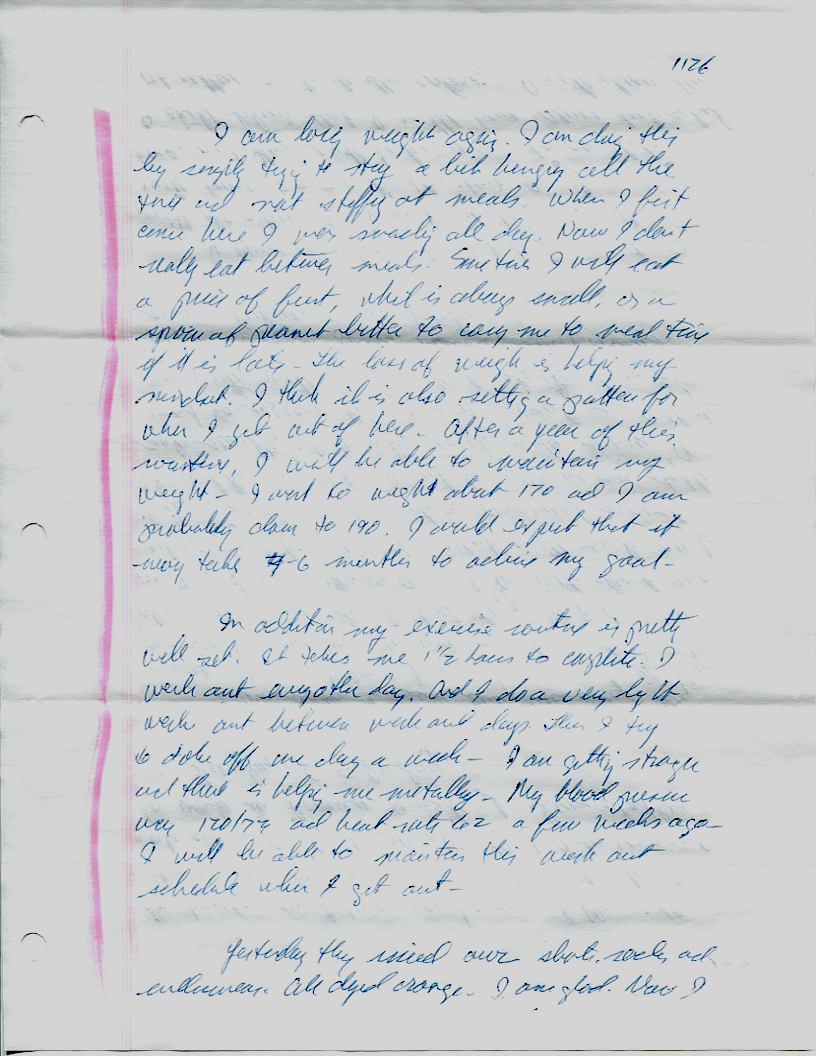 1126
I am losing weight again. I am doing this
by simply trying to stay a bit hungry all the
time and not stuffing at meals. When I first
came here I was snacking all day. Now I don't
really eat between meals. Sometimes I will eat
a piece of fruit, which is always small, or a
spoon of peanut butter to carry me to meal time
if it is late. The loss of weight is helping my
mindset. I think it is also setting a pattern for
when I get out of here. After a year of this
routine, I will be able to maintain my
weight - I want to weight about 170 and I am
probably down to 190. I would expect that it
may take 6 months to achieve my goal -
In addition my exercise routine is pretty
well set. It takes me 1 1/2 hours to complete. I
work out every other day. And I do a very light
work out between work out days. Then I try
to take off one day a week - I am getting stronger
and that is helping me mentally - My blood pressure
was 120/72 and heart rate 62 a few weeks ago -
I will be able to maintain this work out
schedule when I get out -
Yesterday they our shorts, socks and
underwear. All dyed orange. I am glad. Now I